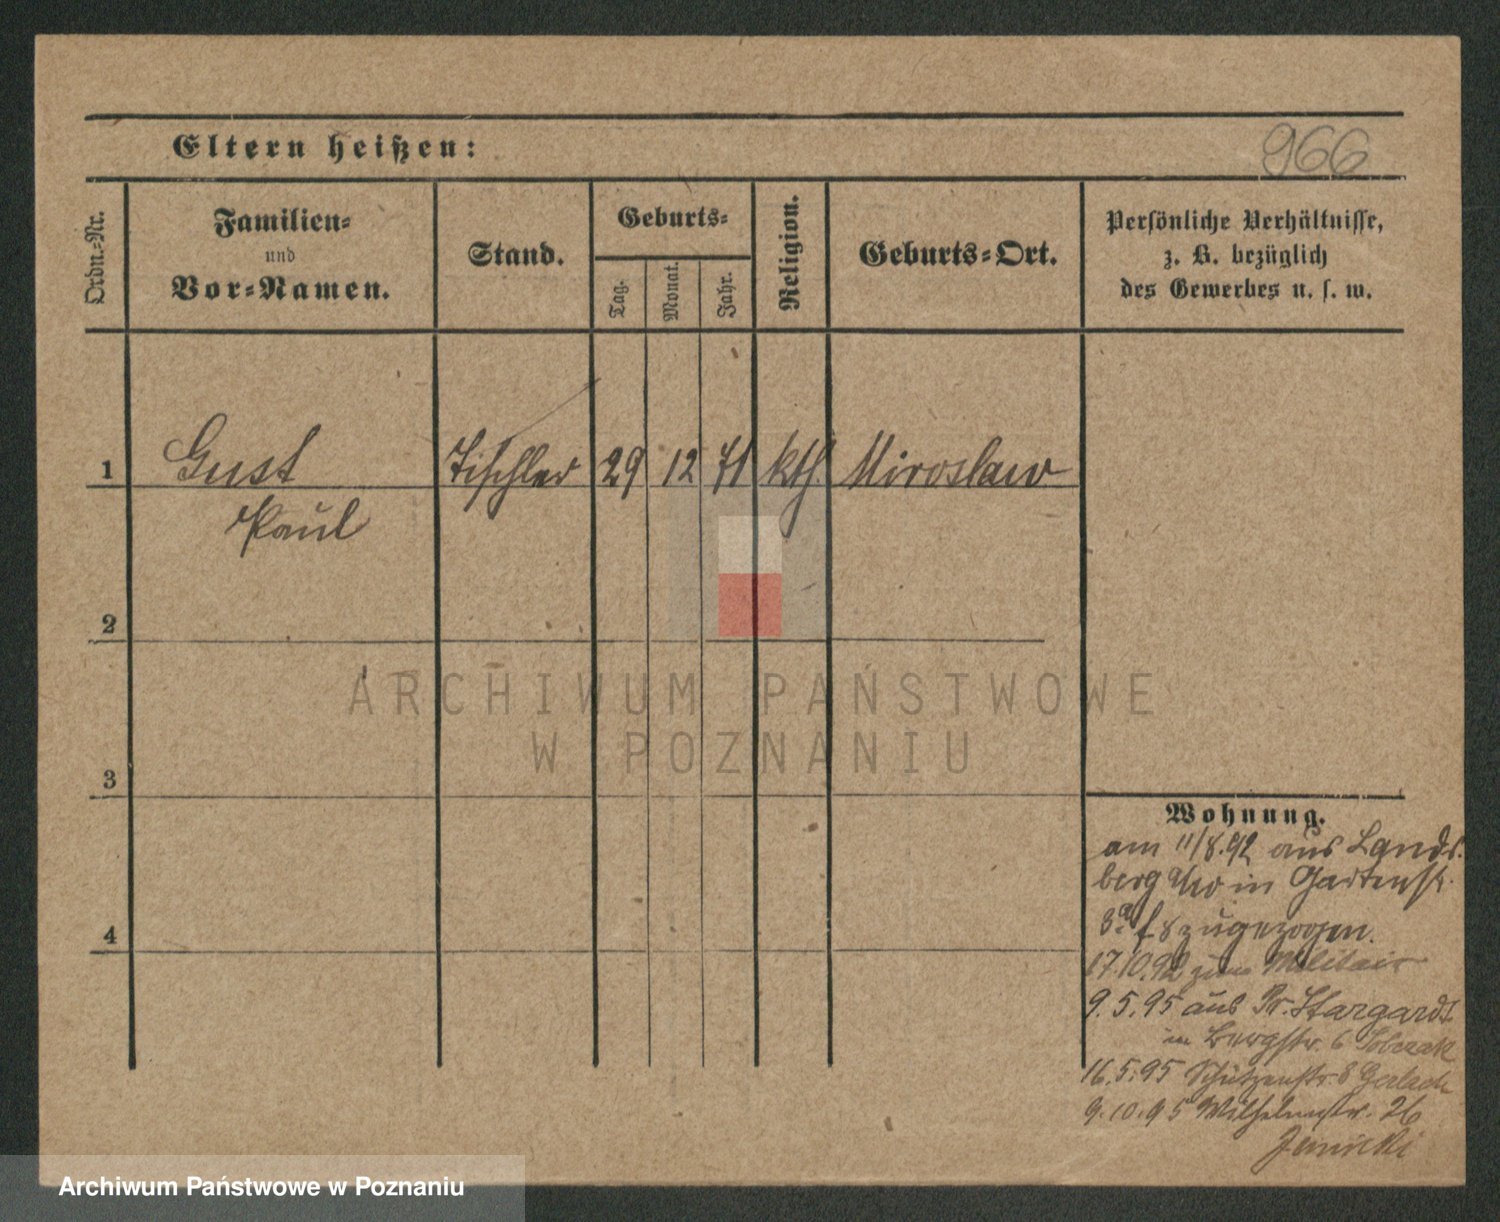 Eltern heißen:
966
Ordn.-Nr.
Familien-
und
Vor-Namen.
Stand.
Geburts-
Tag.
Monat.
Jahr.
Religion.
Geburts-Ort.
Persönliche Verhältnisse,
z. B. bezüglich
des Gewerbes u. s. w.
1 Gust Tischler 29 12 71 kth. Miroslaw
Paul
2
3
4
ARCHIWUM PAŃSTWOWE
W POZNANIU
Wohnung.
am 11/8.92 aus Lands-
berg a/W in Gartenstr.
zugezogen.
17.10.92 zum Militair
9.5.95 aus Pr. Stargardt
in Bergstr. 6 Sobczak
16.5.95 Schützenstr. 8 Gerlach
9.10.95 Wilhelmstr. 26
Archiwum Państwowe w Poznaniu